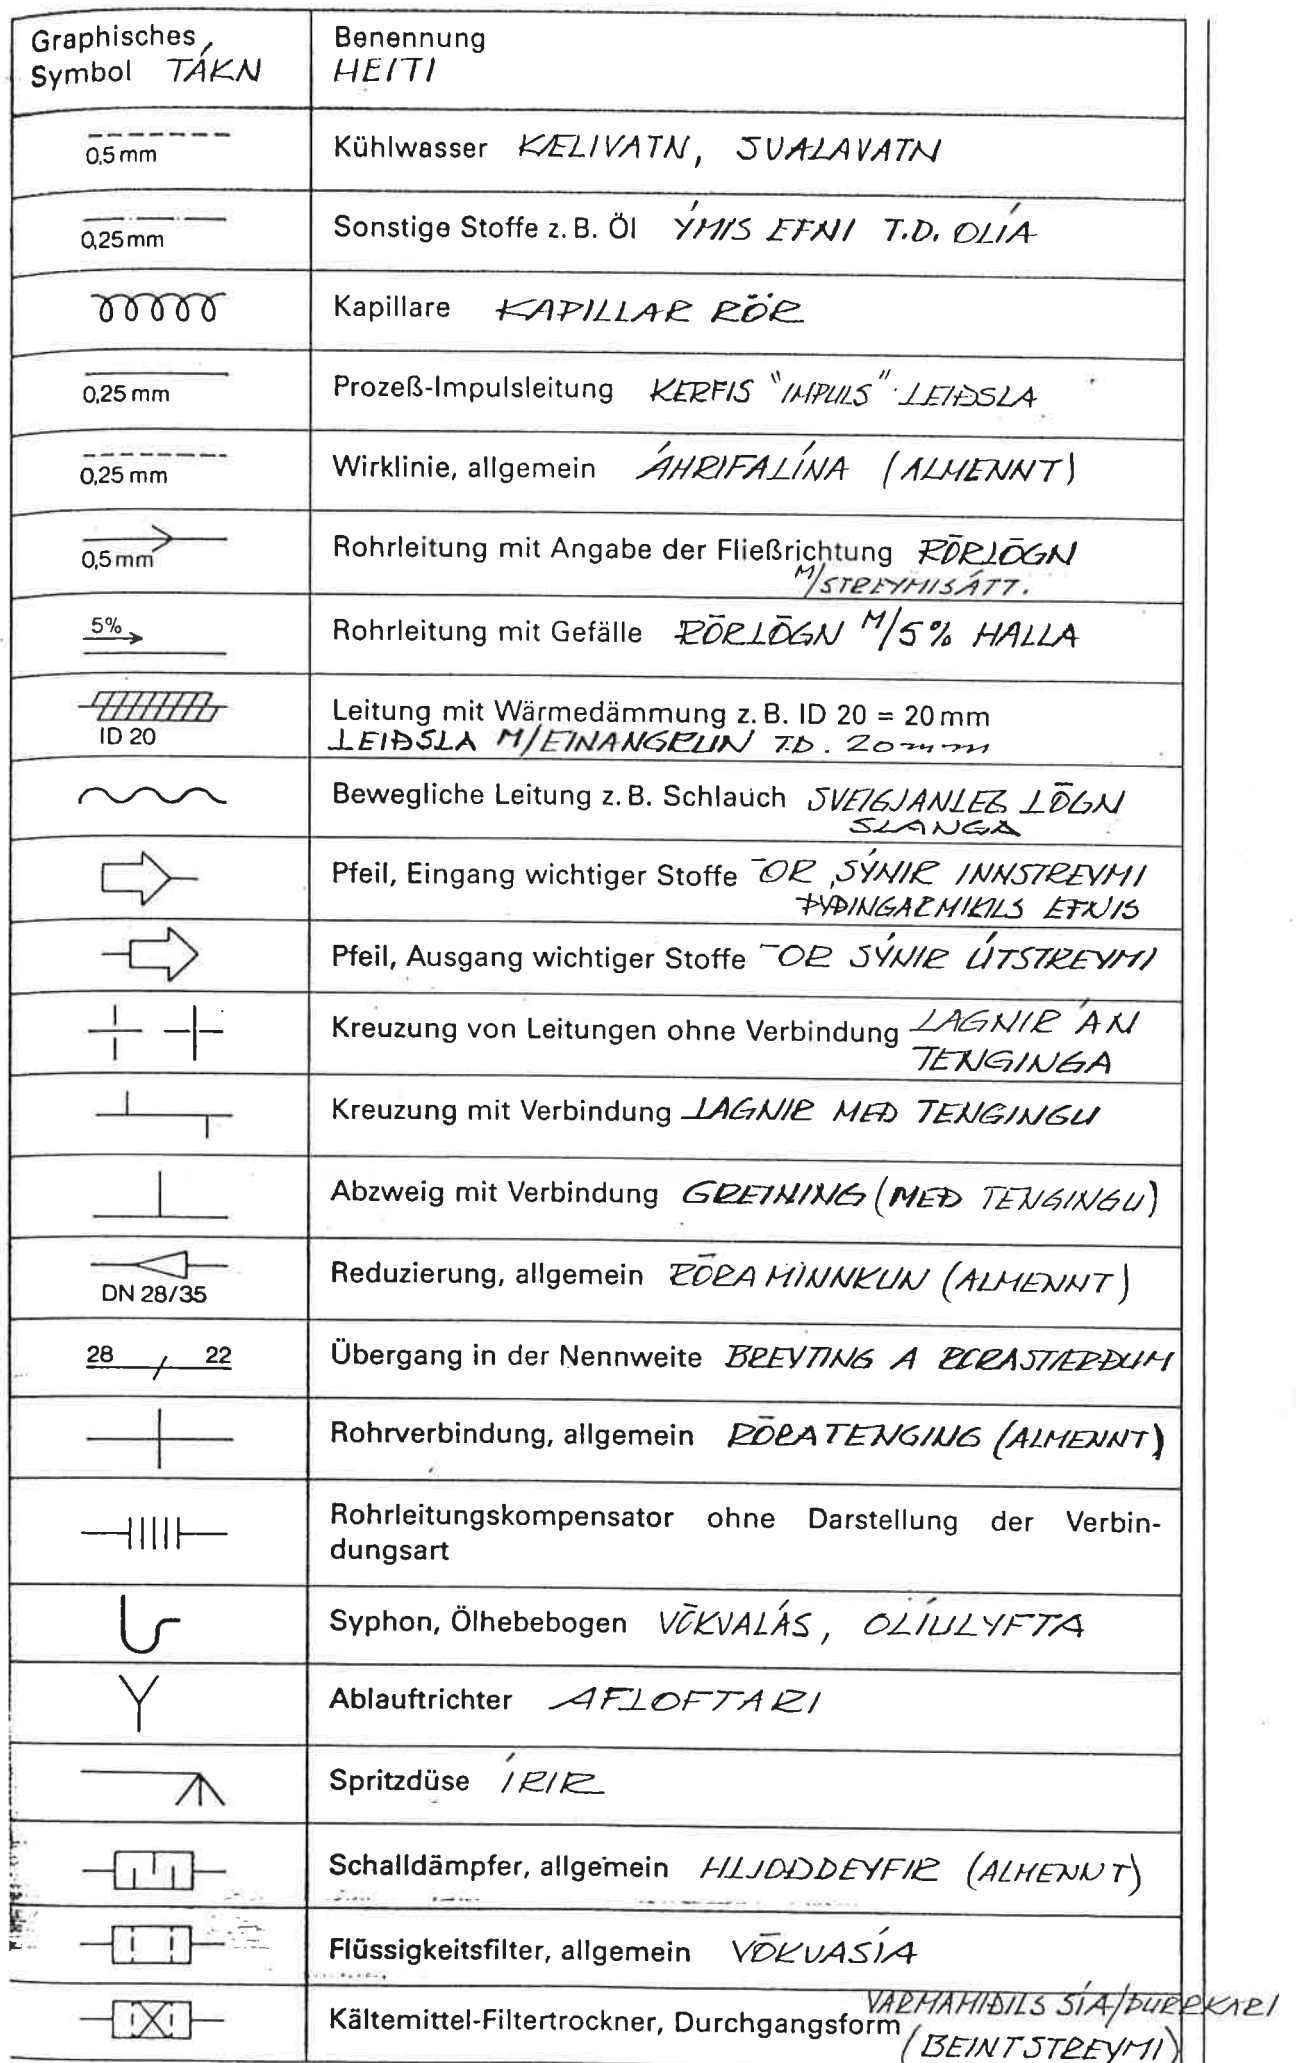 Graphisches Symbol TÁKN
Benennung HEITI
0,5 mm
Kühlwasser KÆLIVATN, SVALAVATN
0,25 mm
Sonstige Stoffe z. B. Öl ÝMIS EFNI T.D. OLÍA
Kapillare KAPILLAR RÖR
0,25 mm
Prozeß-Impulsleitung KERFIS "IMPULS" LEIÐSLA
0,25 mm
Wirklinie, allgemein ÁHRIFALÍNA (ALMENNT)
0,5 mm
Rohrleitung mit Angabe der Fließrichtung RÖRLÖGN
M/STREYMISÁTT.
5%
Rohrleitung mit Gefälle RÖRLÖGN M/5% HALLA
ID 20
Leitung mit Wärmedämmung z. B. ID 20 = 20 mm
LEIÐSLA M/EINANGRUN T.D. 20 mm
Bewegliche Leitung z. B. Schlauch SVEIGJANLEG LÖGN
SLANGA
Pfeil, Eingang wichtiger Stoffe ÖR, SÝNIR INNSTREYMI
ÞÝÐINGARMIKILS EFNIS
Pfeil, Ausgang wichtiger Stoffe ÖR SÝNIR ÚTSTREYMI
Kreuzung von Leitungen ohne Verbindung LAGNIR ÁN
TENGINGA
Kreuzung mit Verbindung LAGNIR MEÐ TENGINGU
Abzweig mit Verbindung GREINING (MEÐ TENGINGU)
DN 28/35
Reduzierung, allgemein RÖRAMINNKUN (ALMENNT)
28 / 22
Übergang in der Nennweite BREYTING A RÖRASTÆRÐUM
Rohrverbindung, allgemein RÖRATENGING (ALMENNT)
Rohrleitungskompensator ohne Darstellung der Verbin-
dungsart
Syphon, Ölhebebogen VÖKVALÁS, OLÍULYFTA
Ablauftrichter AFLOFTARI
Spritzdüse ÍRIR
Schalldämpfer, allgemein HLJODDEYFIR (ALMENNT)
Flüssigkeitsfilter, allgemein VÖKVASÍA
Kältemittel-Filtertrockner, Durchgangsform VARMAMIÐILS SÍA/ÞURRKARI
(BEINT STREYMI)